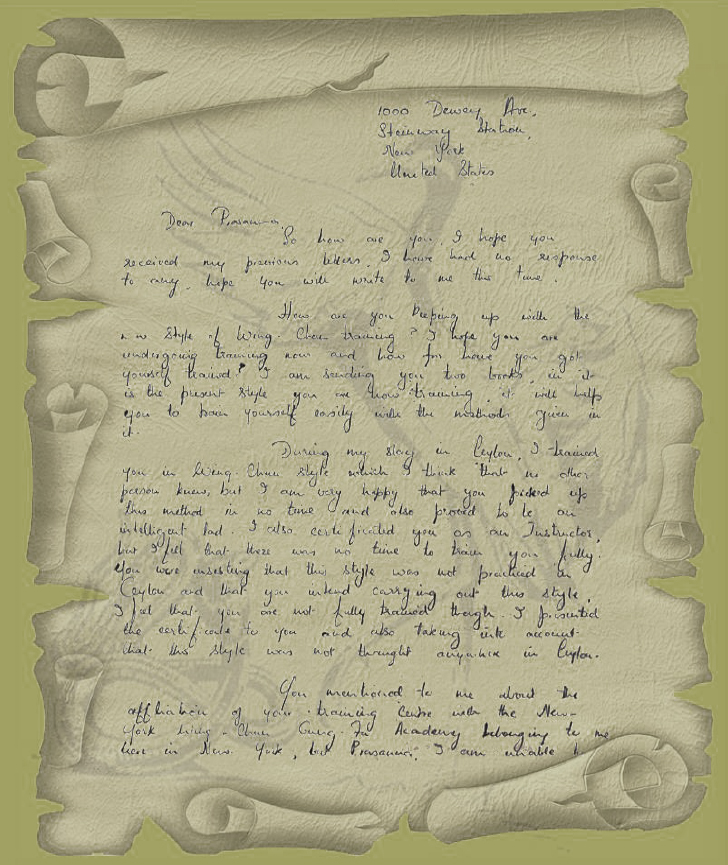 1000 Dewey Ave,
Steinway Station,
New York
United States
Dear Prasanna.
So how are you. I hope you
received my previous letters, I have had no response
to any. hope you will write to me this time.
How are you keeping up with the
new style of Wing-Chun training? I hope you are
undergoing training now and how far have you got
yourself trained? I am sending you two books, in it
is the present style you are now training, it will help
you to train yourself easily with the methods given in
it.
During my stay in Ceylon, I trained
you in Wing-Chun style which I think that no other
person knew, but I am very happy that you picked up
this method in no time and also proved to be an
intelligent lad. I also certificated you as an Instructor,
but I felt that there was no time to train you fully.
You were insisting that this style was not practiced in
Ceylon and that you intend carrying out this style,
I feel that you are not fully trained though. I presented
the certificate to you and also taking into account
that this style was not thought anywhere in Ceylon.
You mentioned to me about the
affliation of your training Centre with the New-
York Wing-Chun Gung-Fu Academy belonging to me
here in New York, but Prasanna, I am unable to